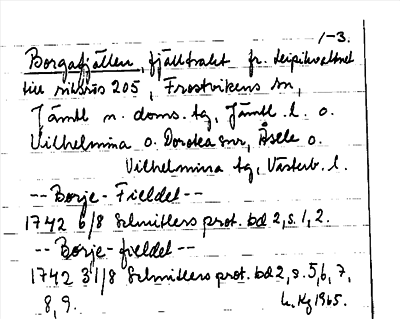 1-3.
Borgafjällen, fjälltrakt fr. Leipikvattnet
till riksrös 205, Frostvikens sn,
Jämtl. n. doms. tg, Jämtl. l. o.
Vilhelmina o. Dorotea snr, Åsele o.
Vilhelmina tg, Västerb. l.
-- Borje-Fieldet --
1742 6/8 Schnitlers prot. bd 2, s. 1, 2.
-- Borje-fieldet --
1742 31/8 Schnitlers prot. bd 2, s. 5, 6, 7,
8, 9. 1965.